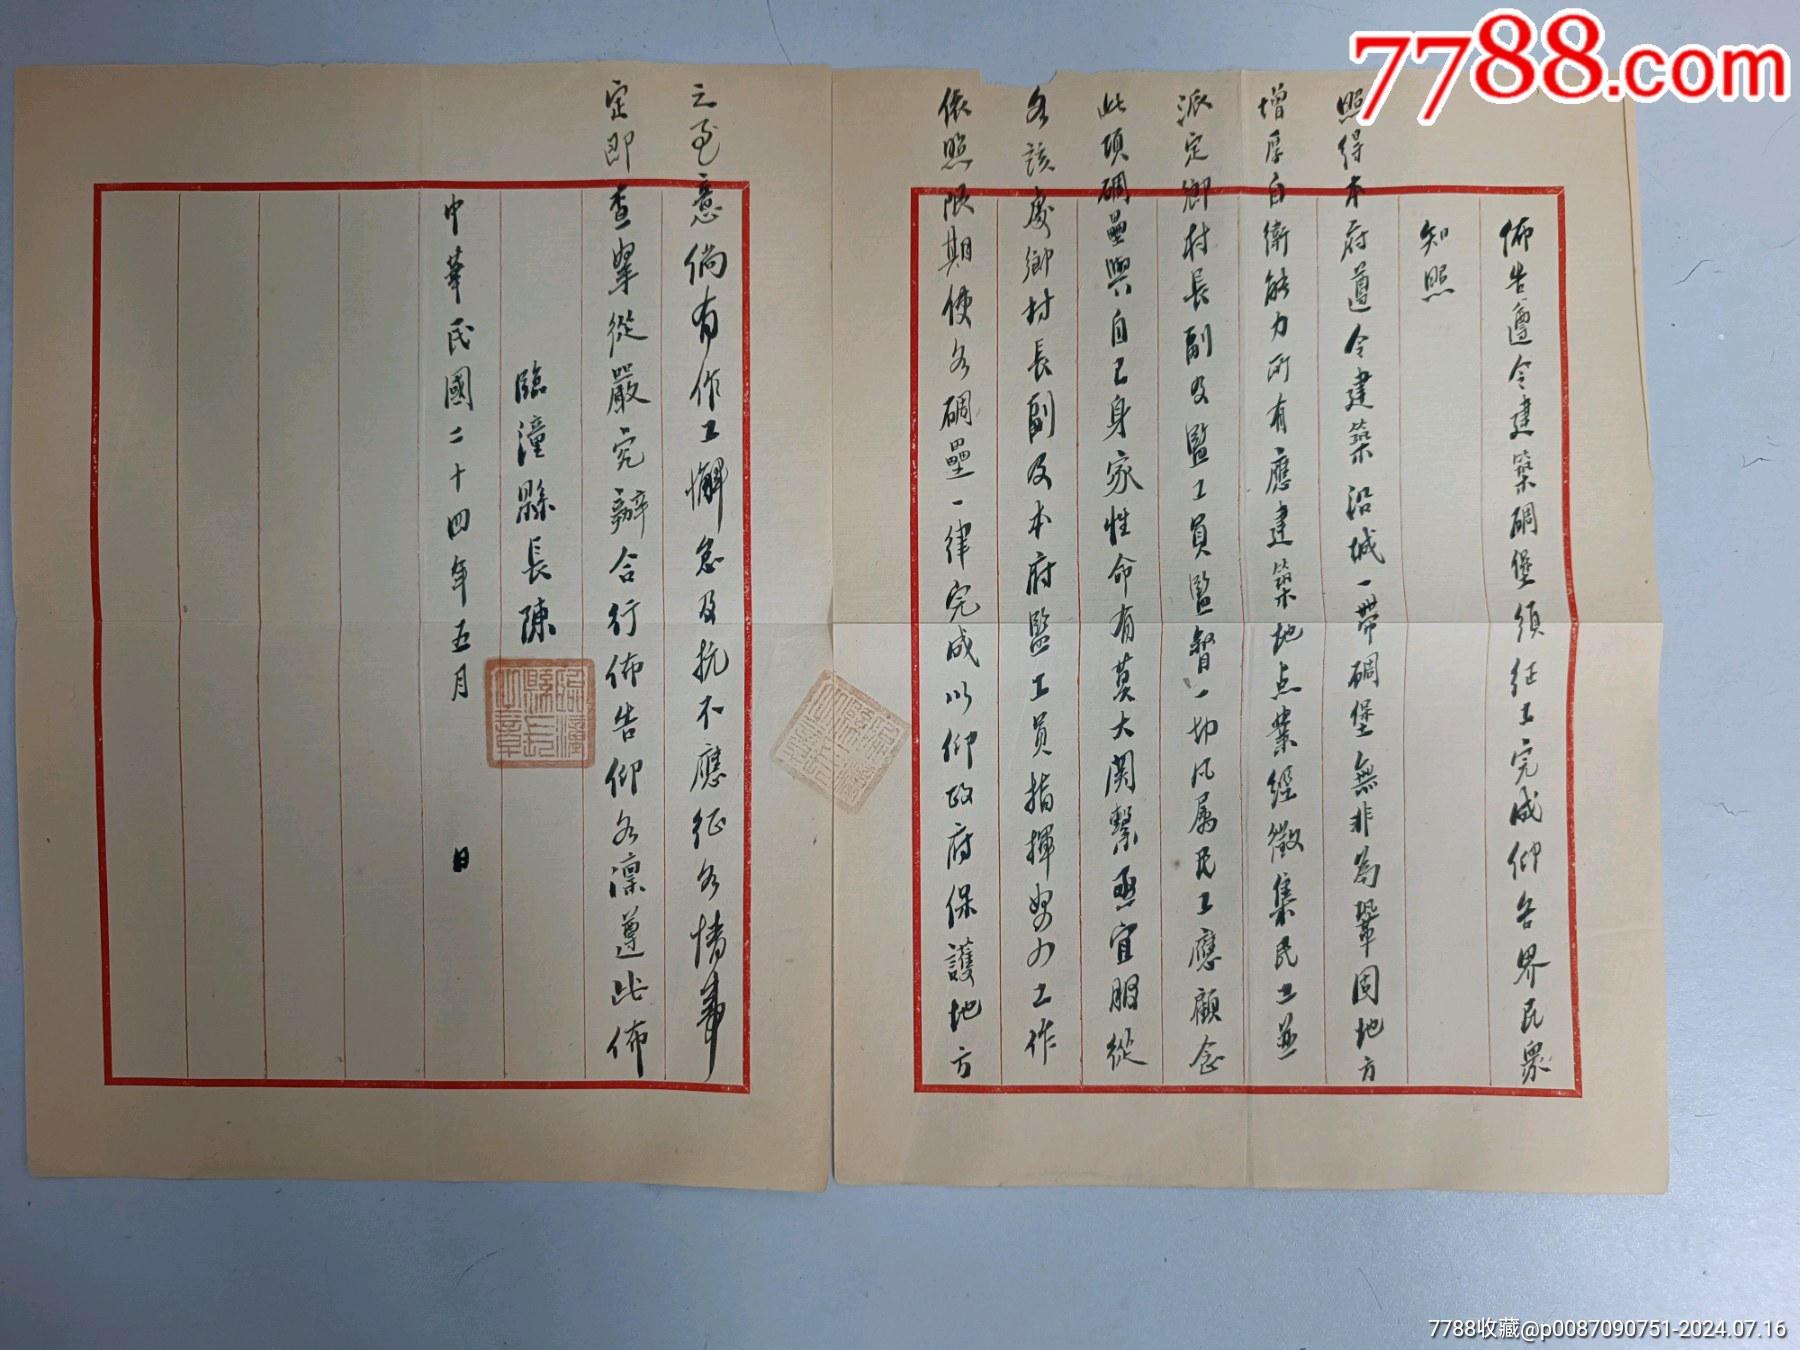 7788.com
佈告遵令建築碉堡須征工完成仰各界民眾
知照
照得本府遵令建築沿城一帶碉堡無非為鞏固地方
增厚自衛能力所有應建築地点業經徵集民工並
派定鄉村長副及監工員監督一切凡属民工應顧念
此項碉壘與自己身家性命有莫大関繫亟宜服從
各該處鄉村長副及本府監工員指揮努力工作
依照限期使各碉壘一律完成以仰政府保護地方
之至意倘有作工懈怠及抗不應征各情事
定即查拏從嚴究辦合行佈告仰各凛遵此佈
臨潼縣長陳
臨潼縣長之章
中華民國二十四年五月 日
7788收藏@p0087090751-2024.07.16